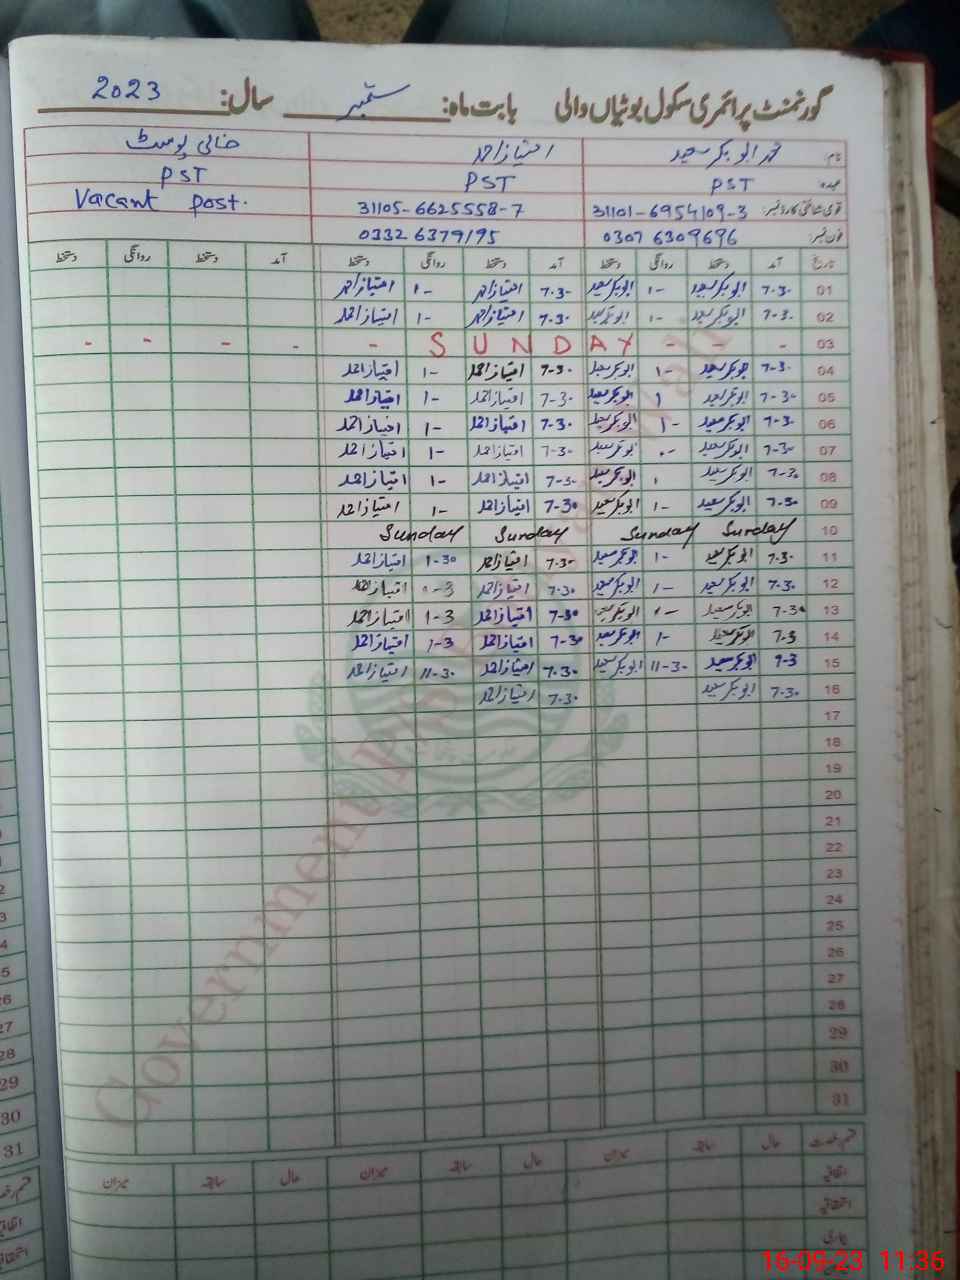 گورنمنٹ پرائمری سکول بوٹیاں والی بابت ماہ: ستمبر سال: 2023
نام: محمد ابوبکر سعید امتیاز احمد خالی پوسٹ
عہدہ PST PST PST
قومی شناختی کارڈ نمبر: 31101-6954109-3 31105-6625558-7 Vacant post.
فون نمبر: 0307 6309696 0332 6379195
تاریخ آمد دستخط روانگی دستخط آمد دستخط روانگی دستخط آمد دستخط روانگی دستخط
01 7-30 ابوبکر سعید 1- ابوبکر سعید 7-30 امتیاز احمد 1- امتیاز احمد
02 7-30 ابوبکر سعید 1- ابوبکر سعید 7-30 امتیاز احمد 1- امتیاز احمد
03 - - - SUNDAY - - - - -
04 7-30 ابوبکر سعید 1- ابوبکر سعید 7-30 امتیاز احمد 1- امتیاز احمد
05 7-30 ابوبکر سعید 1 ابوبکر سعید 7-30 امتیاز احمد 1- امتیاز احمد
06 7-30 ابوبکر سعید 1- ابوبکر سعید 7-30 امتیاز احمد 1- امتیاز احمد
07 7-30 ابوبکر سعید ابوبکر سعید 7-30 امتیاز احمد 1- امتیاز احمد
08 7-30 ابوبکر سعید ابوبکر سعید 7-30 امتیاز احمد 1- امتیاز احمد
09 7-30 ابوبکر سعید 1- ابوبکر سعید 7-30 امتیاز احمد 1- امتیاز احمد
10 Sunday Sunday Sunday Sunday
11 7-30 ابوبکر سعید 1- ابوبکر سعید 7-30 امتیاز احمد 1-30 امتیاز احمد
12 7-30 ابوبکر سعید 1- ابوبکر سعید 7-30 امتیاز احمد امتیاز احمد
13 7-30 ابوبکر سعید ابوبکر سعید 7-30 امتیاز احمد 1-3 امتیاز احمد
14 7-3 ابوبکر سعید 1- ابوبکر سعید 7-30 امتیاز احمد 1-3 امتیاز احمد
15 7-3 ابوبکر سعید 11-30 ابوبکر سعید 7-30 امتیاز احمد 11-30 امتیاز احمد
16 7-30 ابوبکر سعید 7-30 امتیاز احمد
17
18
19
20
21
22
23
24
25
26
27
28
29
30
31
قسم رخصت حال سابقہ میزان حال سابقہ میزان حال سابقہ میزان
اتفاقیہ
استحقاقیہ
بیماری
Government
16-09-23 11:36